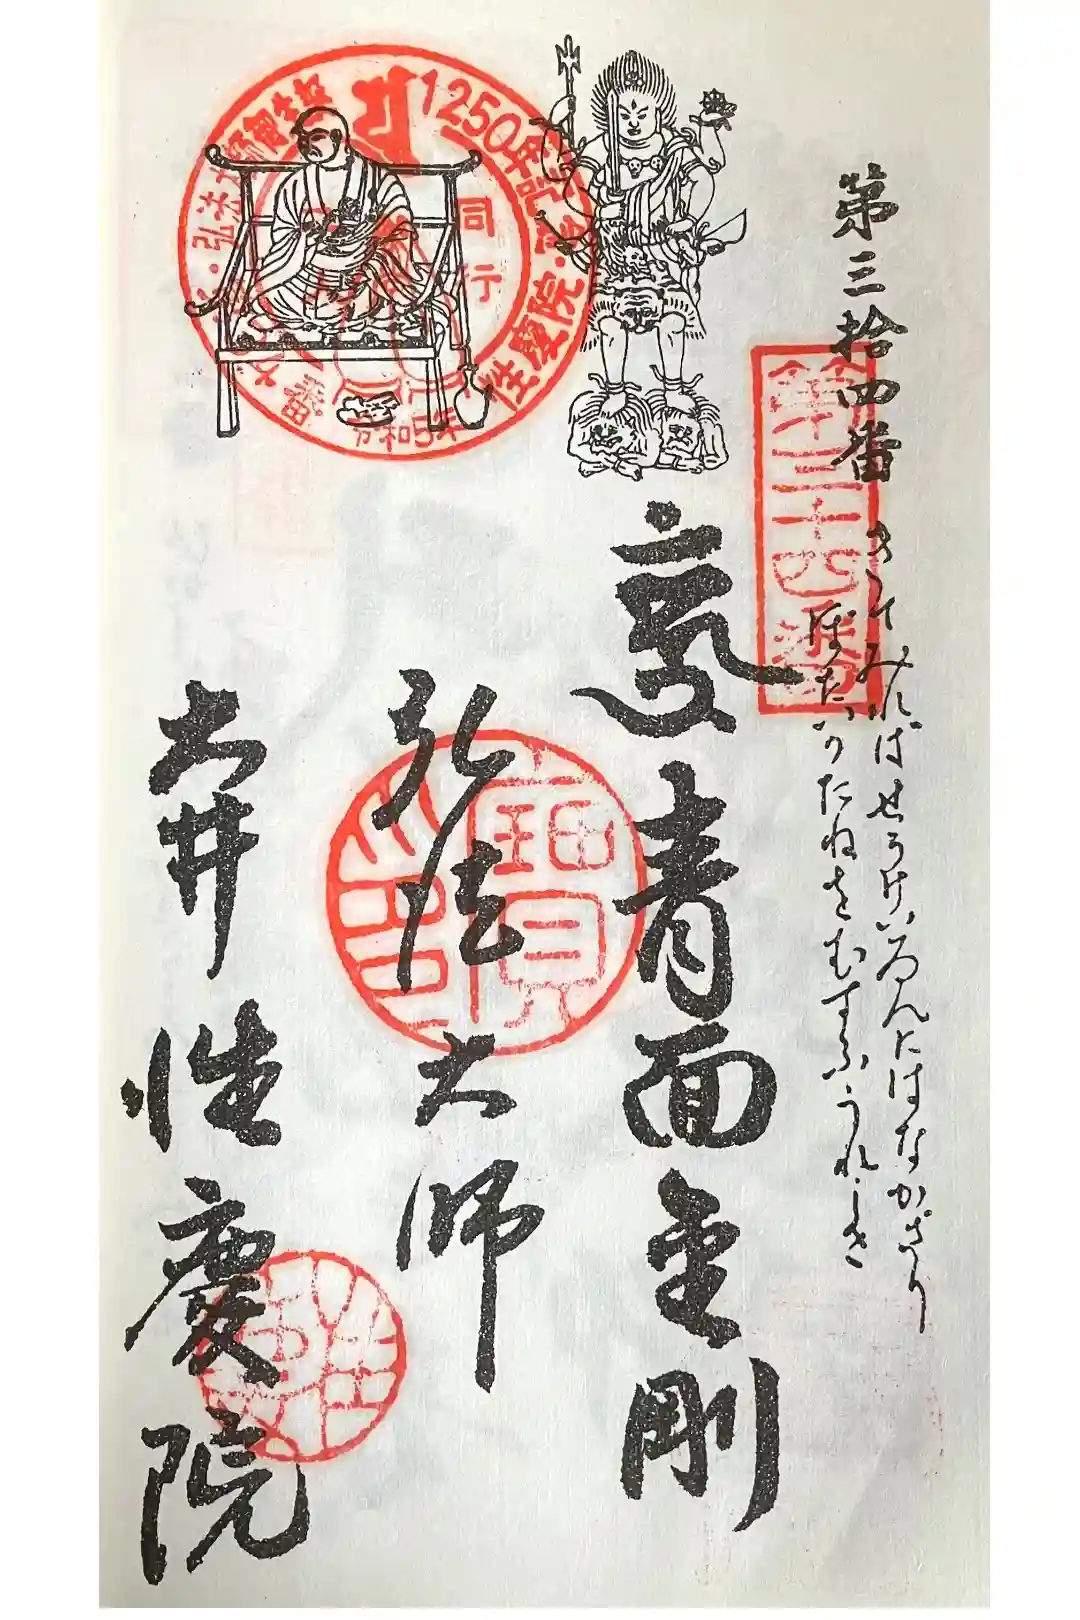 第三拾四番
きてみればせうけいゐんにはなかざり
ぼだいのたねをむすぶうれしさ
青面金剛
弘法大師
大井 性慶院
第三十四番
弘法大師御生誕1250年記念・性慶院
同行
令和5年